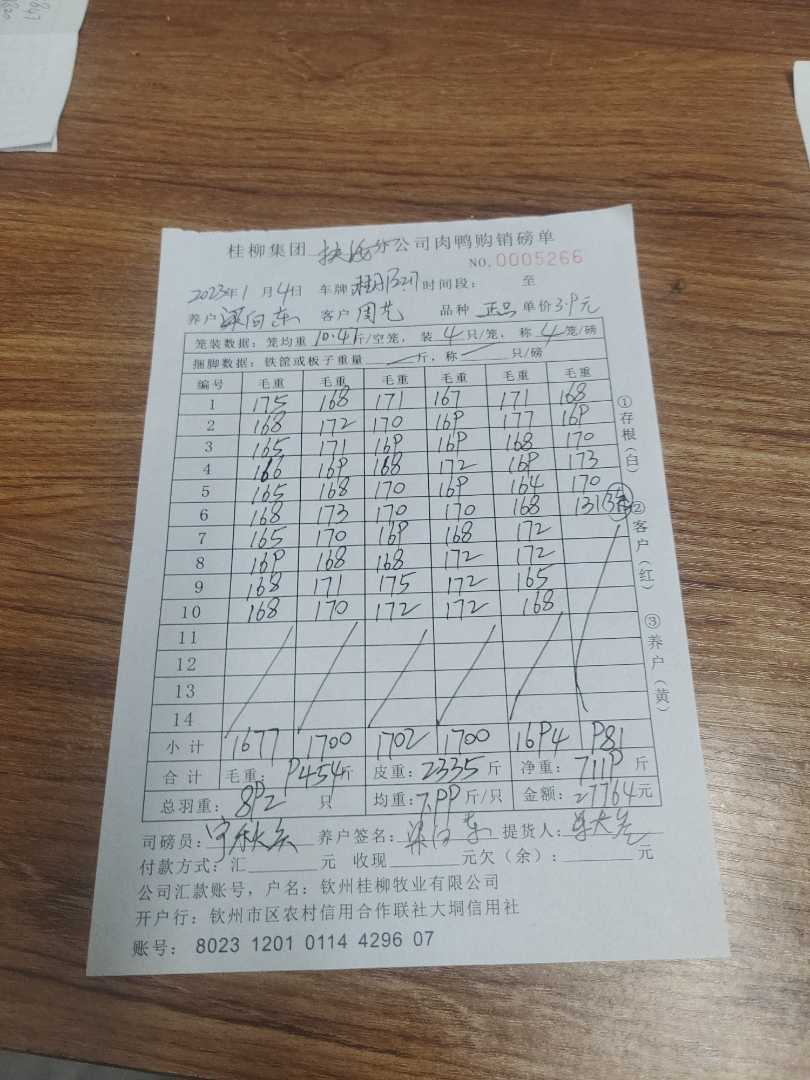 桂柳集团 分公司肉鸭购销磅单
NO. 0005266
2023年1月4日 车牌 时间段: 至
养户 梁向东 客户 周艺 品种 正品 单价 3.9元
笼装数据: 笼均重 10.47斤/空笼, 装 4 只/笼, 称 4 笼/磅
捆脚数据: 铁筐或板子重量 — 斤, 称 — 只/磅
编号 毛重 毛重 毛重 毛重 毛重 毛重
1 175 168 171 167 171 168
2 168 172 170 169 177 169
3 165 171 169 169 168 170
4 166 169 168 172 169 173
5 165 168 170 169 164 170
6 168 173 170 170 168 131
7 165 170 169 168 172
8 169 168 168 172 172
9 168 171 175 172 165
10 168 170 172 172 168
11
12
13
14
小计 1677 1700 1702 1700 1694 981
合计 毛重: 9454斤 皮重: 2335斤 净重: 7119斤
总羽重: 892 只 均重: 7.99斤/只 金额: 27764元
司磅员: 养户签名: 梁向东 提货人:
付款方式: 汇 元 收现 元欠(余): 元
公司汇款账号, 户名: 钦州桂柳牧业有限公司
开户行: 钦州市区农村信用合作联社大垌信用社
账号: 8023 1201 0114 4296 07
①存根(白)
②客户(红)
③养户(黄)